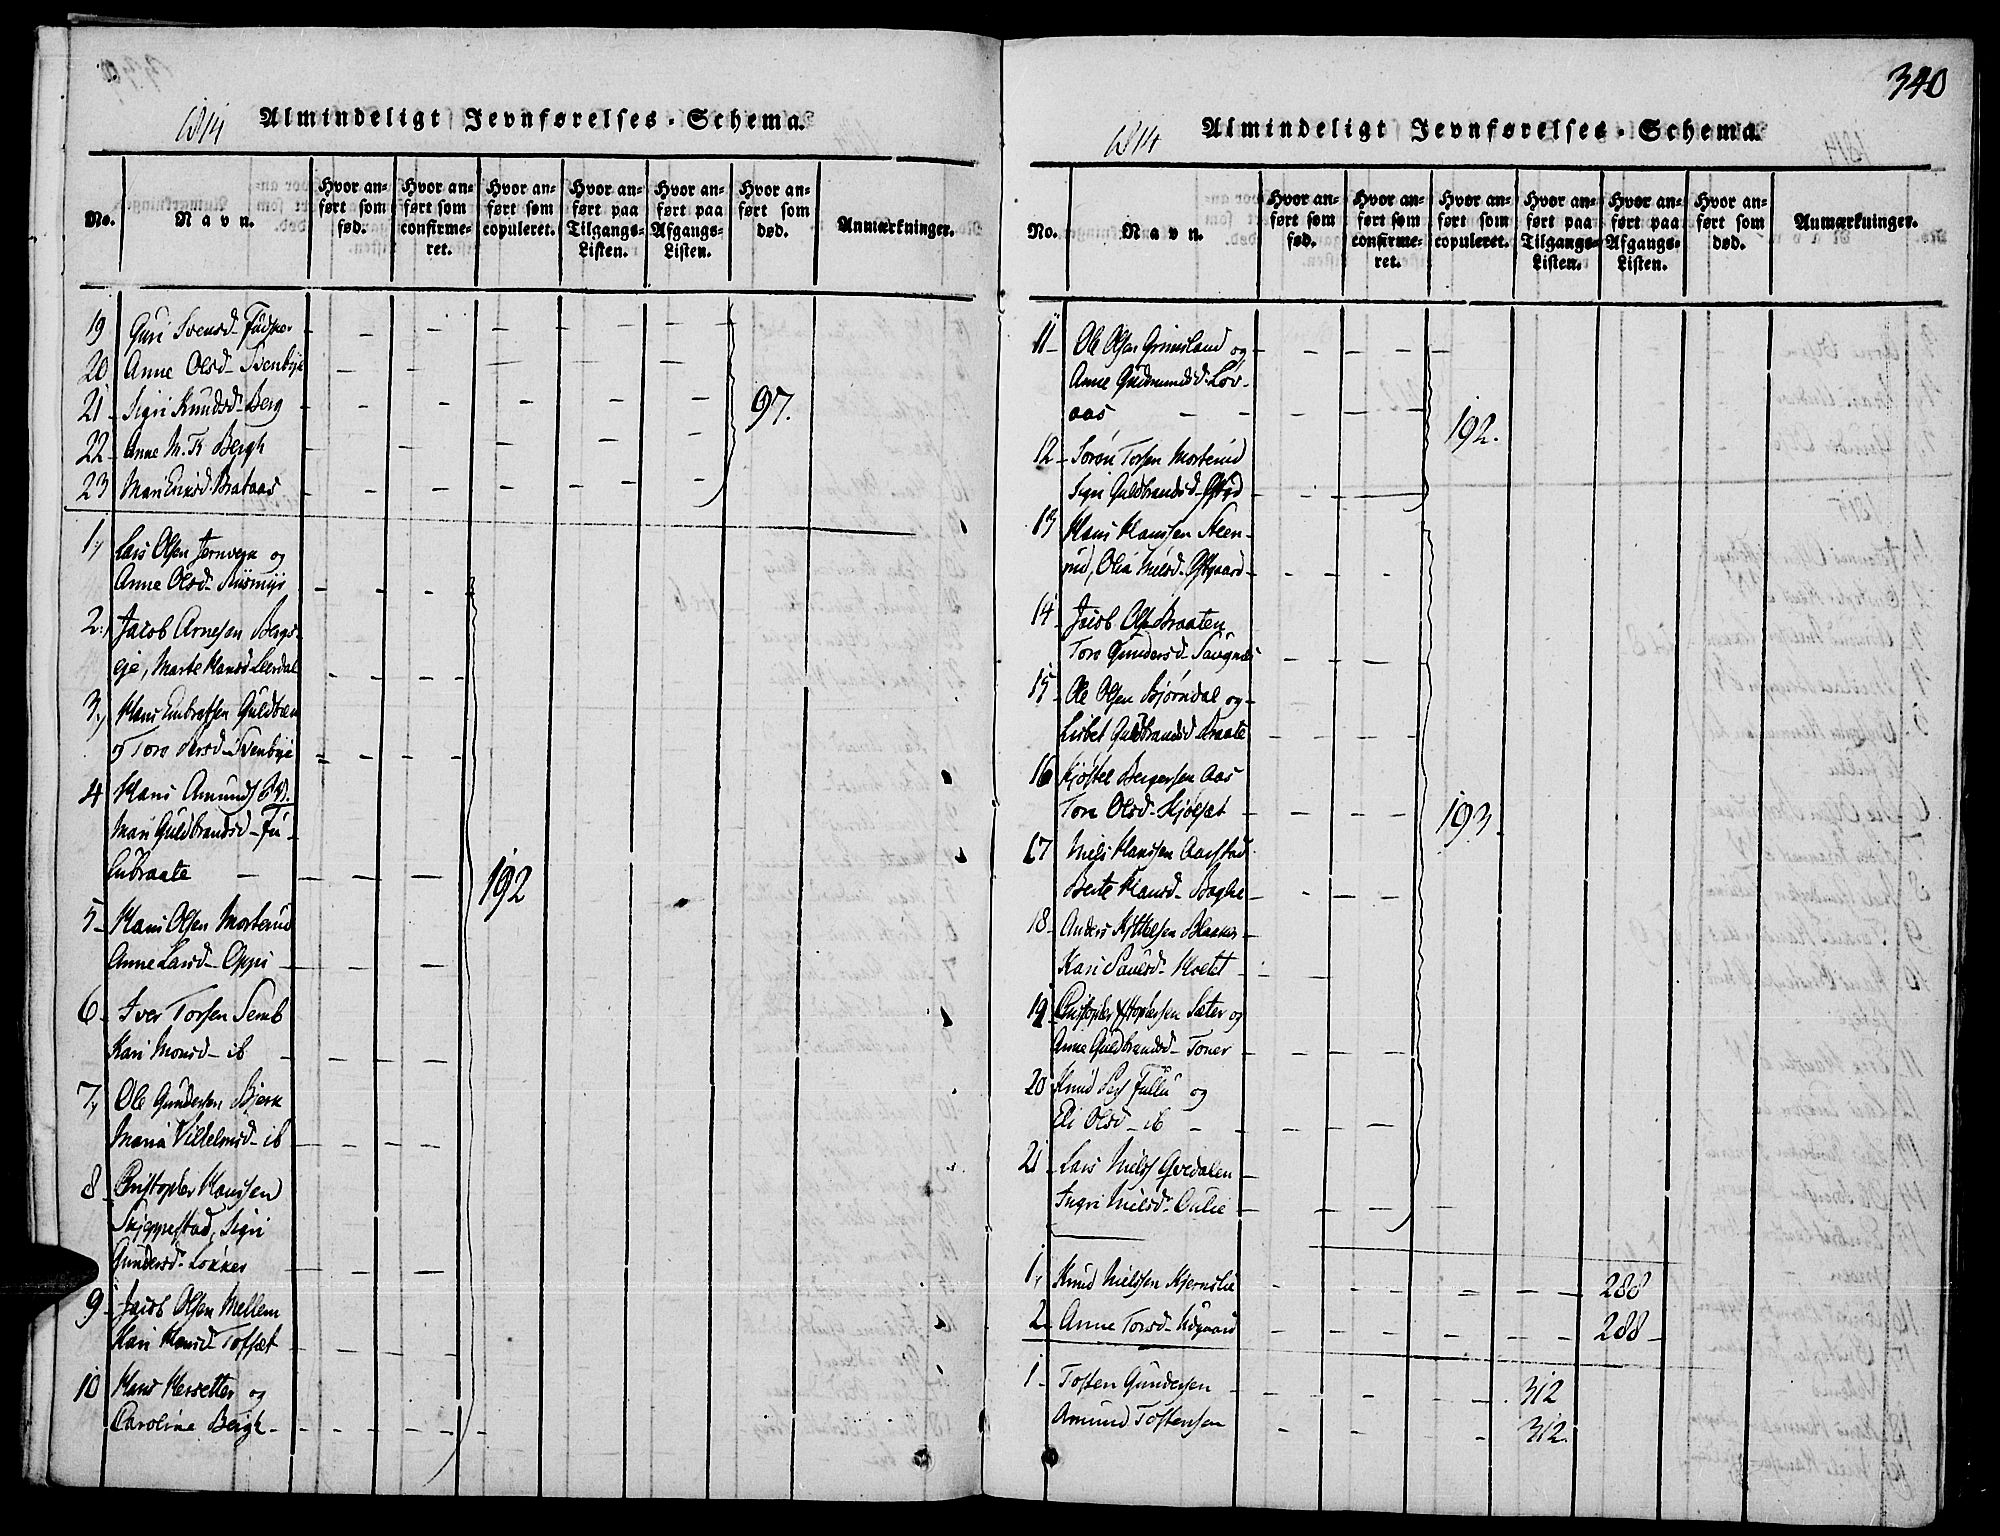 1814
Almindeligt Jevnførelses-Schema.
No.
Navn.
Hvor anført som fød.
Hvor anført som confirmeret.
Hvor anført som copuleret.
Hvor anført paa Tilgangs-Listen.
Hvor anført paa Afgangs-Listen.
Hvor anført som død.
Anmærkninger.
19 Guri Svensd
20 Anne Olsd - Svenbye
21 Sigri Knudsd - Berg
97.
22 Anne M. K Bergh
23 Mari Ericsd. Brataas
1, Lars Olsen Jernverk og
Anne Olsd
2, Jacob Arnesen Bergs-
eje, Marte Hansd Leerdal
3, Hans Embretsen
og Tore Larsd - Svenbye
4 Hans Amunds
Mari Guldbrandsd - Fu-
lubraate
192
5 - Hans Olsen Morterud
Anne Larsd - Oppi
6 - Iver Torsen Semb
Kari Monsd - ib
7, Ole Gundersen Bjerk
Maria Vilhelmsd - ib
8 Christopher Hansen
Skjeppestad, Sigri
Gundersd - Løkker
9 - Jacob Olsen Mellem
Kari Hansd Tofsæt
10 Hans Hersetter og
Caroline Bergh
340
1814
Almindeligt Jevnførelses-Schema.
No.
Navn.
Hvor anført som fød.
Hvor anført som confirmeret.
Hvor anført som copuleret.
Hvor anført paa Tilgangs-Listen.
Hvor anført paa Afgangs-Listen.
Hvor anført som død.
Anmærkninger.
11 - Ole Olsen Grimsland og
Anne Gudmundsd. Løv-
aas
192.
12 - Søren Torsen Morterud
Sigri Guldbrandsd
13 Hans Hansen Steen-
rud, Olia Nielsd - Østgaard
14 Jacob Ols Braaten
Tore Gundersd
15 - Ole Olsen Bjørndal og
Lisbet Guldbrandsd Braate
16 Kjøstel Bergersen Aas
Tore Olsd - Kjølset
193.
17 Niels Hansen Aarstad
Berte Hansd - Baghe
18 - Anders Kittelsen Blaaker
Kari Paulsd
19 - Christopher Sæter og
Anne Guldbrandsd - Toner
20 Knud Lars Fullu og
Eli Olsd - ib
21 - Lars Niels Gvedalen
Ingri Nielsd - Oulie
1, Knud Nielsen Kjernslie 288
2 Anne Torsd - Udgaard 288
1 - Tosten Gundersen 312
Amund Tostensen 312.